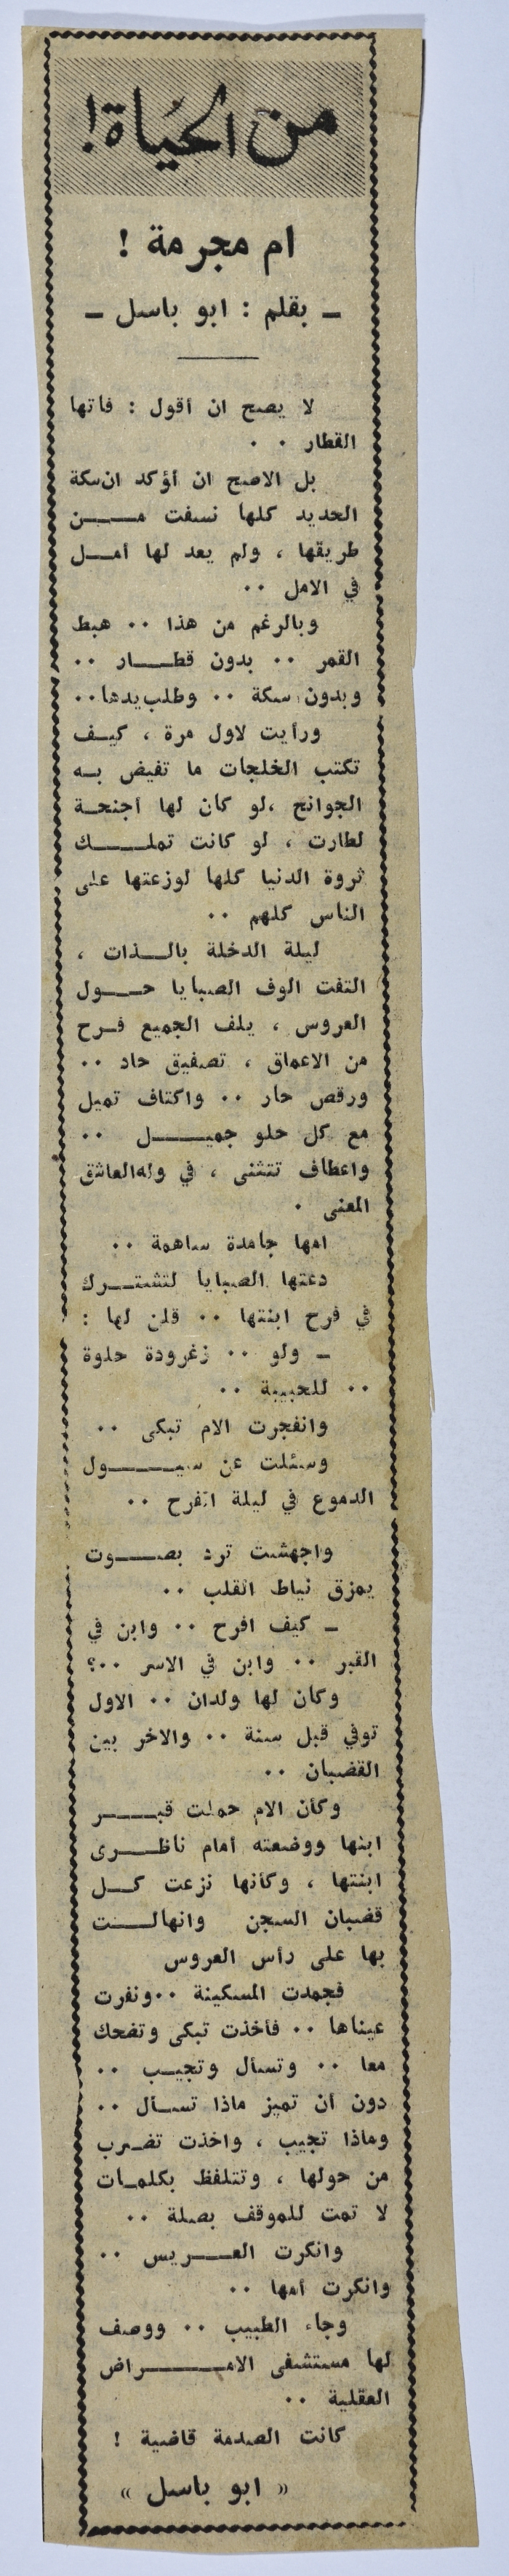 من الحياة!
ام مجرمة !
ـ بقلم : ابو باسل ـ
لا يصح ان أقول : فاتها
القطار ٠ ٠
بل الاصح ان أؤكد ان سكة
الحديد كلها نسفت من
طريقها ، ولم يعد لها أمل
في الامل ٠٠
وبالرغم من هذا ٠٠ هبط
القمر ٠٠ بدون قطار ٠٠
وبدون سكة ٠٠ وطلب يدها٠٠
ورأيت لاول مرة ، كيف
تكتب الخلجات ما تفيض به
الجوانح ،لو كان لها اجنحة
لطارت ، لو كانت تملك
ثروة الدنيا كلها لوزعتها على
الناس كلهم ٠٠
ليلة الدخلة بالذات ،
التفت الوف الصبايا حول
العروس ، يلف الجميع فرح
من الاعماق ، تصفيق حاد ٠٠
ورقص حار ٠٠ واكتاف تميل
مع كل حلو جميل ٠٠
واعطاف تتثنى ، في وله العاشق
المعنى ٠
امها جامدة ساهمة ٠٠
دعتها الصبايا لتشترك
في فرح ابنتها ٠٠ قلن لها :
ـ ولو ٠٠ زغرودة حلوة
٠٠ للحبيبة ٠٠
وانفجرت الام تبكى ٠٠
وسئلت عن سيول
الدموع في ليلة الفرح ٠٠
واجهشت ترد بصوت
يمزق نياط القلب ٠٠
ـ كيف افرح ٠٠ وابن في
القبر ٠٠ وابن في الاسر ٠٠؟
وكان لها ولدان ٠٠ الاول
توفي قبل سنة ٠٠ والاخر بين
القضبان ٠٠
وكأن الام حملت قبر
ابنها ووضعته أمام ناظرى
ابنتها ، وكأنها نزعت كل
قضبان السجن وانهالت
بها على رأس العروس
فجمدت المسكينة ٠٠ونفرت
عيناها ٠٠ فأخذت تبكى وتضحك
معا ٠٠ وتسأل وتجيب ٠٠
دون أن تميز ماذا تسأل ٠٠
وماذا تجيب ، واخذت تضرب
من حولها ، وتتلفظ بكلمات
لا تمت للموقف بصلة ٠٠
وانكرت العريس ٠٠
وانكرت أمها ٠٠
وجاء الطبيب ٠٠ ووصف
لها مستشفى الامراض
العقلية ٠٠
كانت الصدمة قاضية !
« ابو باسل »